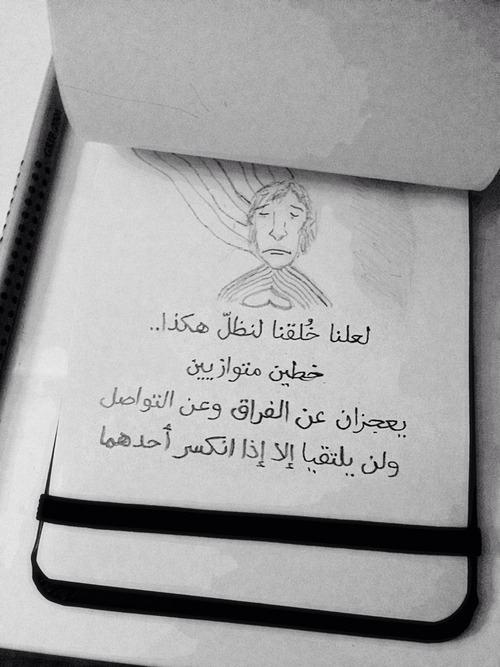 لعلنا خُلقنا لنظلّ هكذا..
خطين متوازيين
يعجزان عن الفراق وعن التواصل
ولن يلتقيا إلا إذا انكسر أحدهما